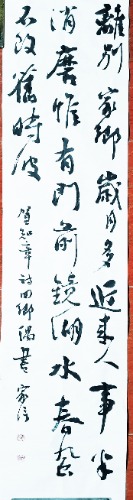 離别家鄉歲月多近来人事半
消磨惟有門前鏡湖水春風
不改舊時波
賀知章詩回鄉偶書 家